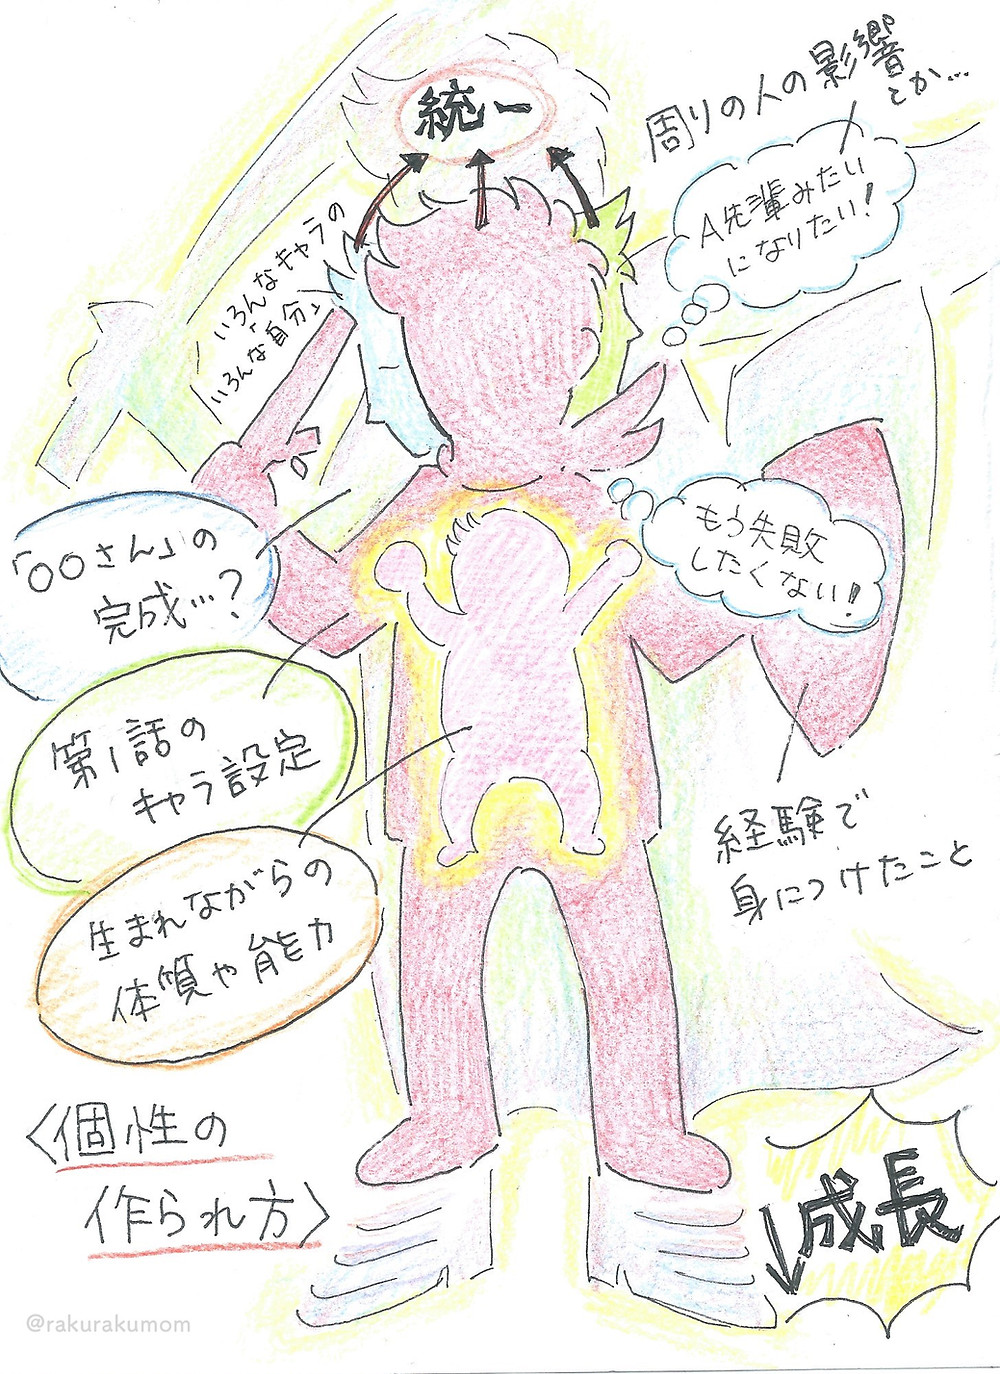 統一
周りの人の影響
とか…
A先輩みたい
になりたい!
いろんなキャラの
「いろんな自分」
もう失敗
したくない!
「〇〇さん」の
完成…?
第1話の
キャラ設定
生まれながらの
体質や能力
経験で
身につけたこと
〈個性の
作られ方〉
↓成長
@rakurakumom